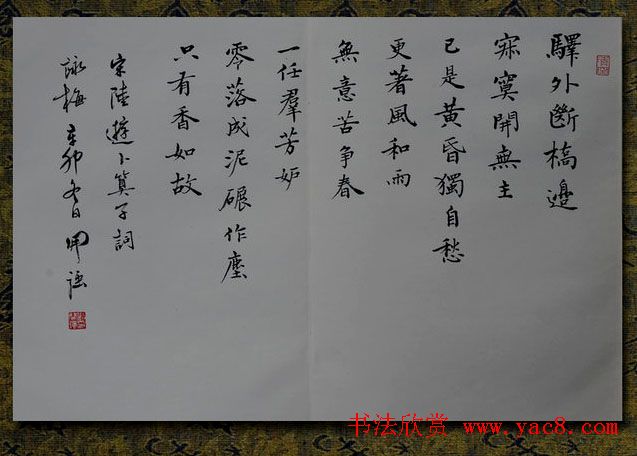 驛外斷橋邊
寂寞開無主
已是黃昏獨自愁
更著風和雨
無意苦争春
一任羣芳妒
零落成泥碾作塵
只有香如故
宋陸遊卜算子詞
詠梅 辛卯冬日
书法欣赏 www.yac8.com